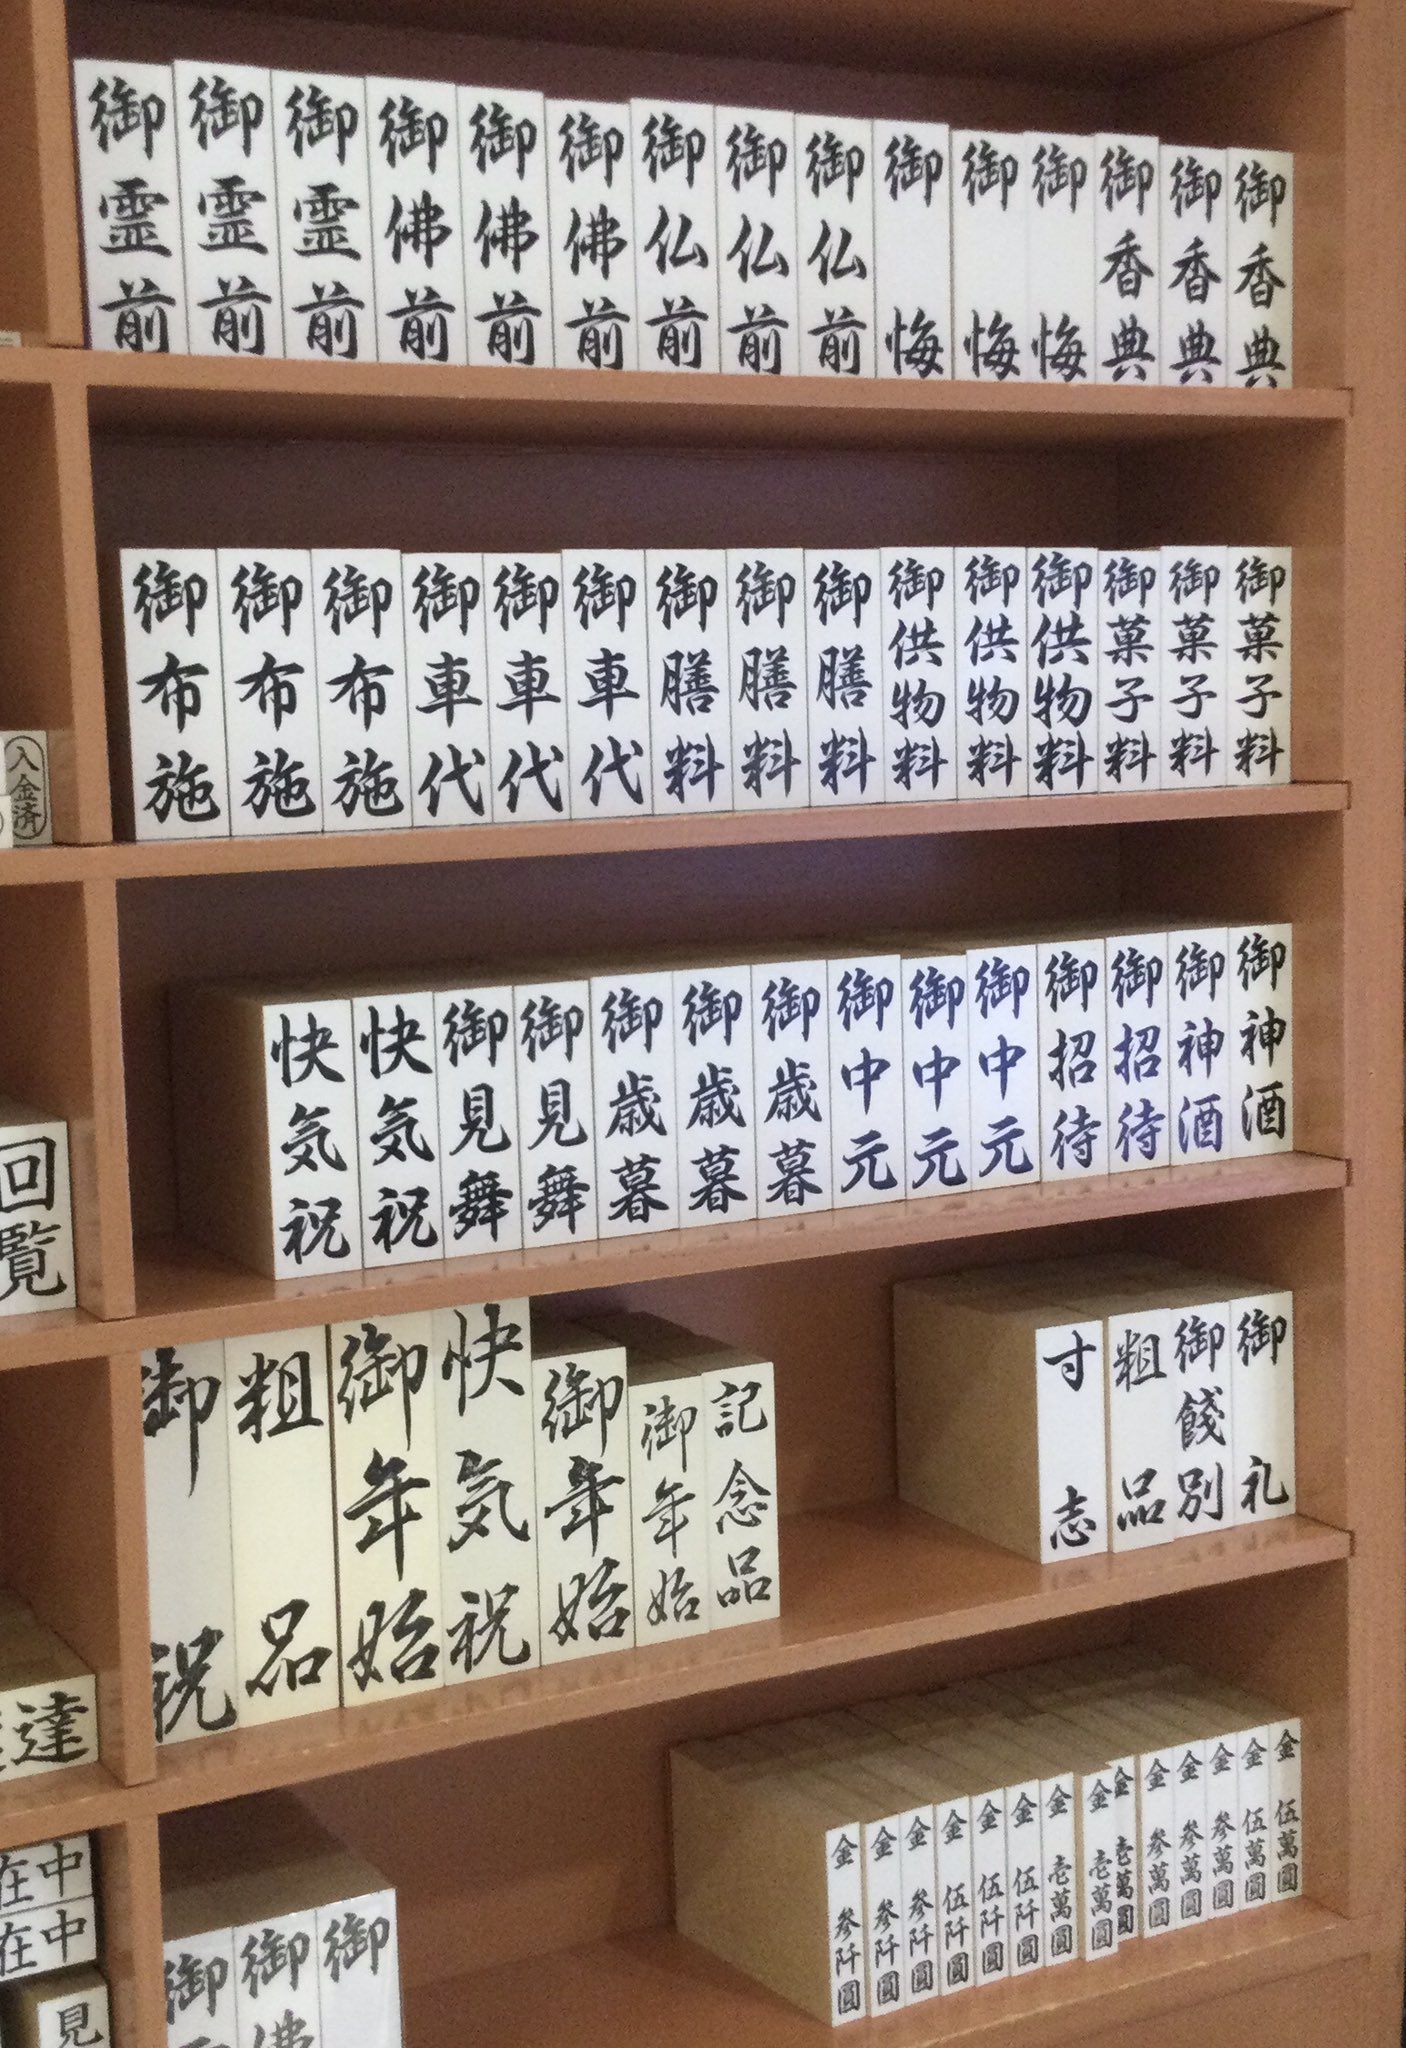 御霊前
御霊前
御霊前
御佛前
御佛前
御佛前
御仏前
御仏前
御仏前
御悔
御悔
御悔
御香典
御香典
御香典
御布施
御布施
御布施
御車代
御車代
御車代
御膳料
御膳料
御膳料
御供物料
御供物料
御供物料
御菓子料
御菓子料
御菓子料
入金済
快気祝
快気祝
御見舞
御見舞
御歳暮
御歳暮
御歳暮
御中元
御中元
御中元
御招待
御招待
御神酒
御神酒
回覧
御祝
粗品
御年始
快気祝
御年始
御年始
記念品
寸志
粗品
御餞別
御礼
達
金参阡圓
金参阡圓
金参阡圓
金伍阡圓
金伍阡圓
金伍阡圓
金壱萬圓
金壱萬圓
金壱萬圓
金参萬圓
金参萬圓
金参萬圓
金伍萬圓
金伍萬圓
在中
在中
見
御
御佛
御